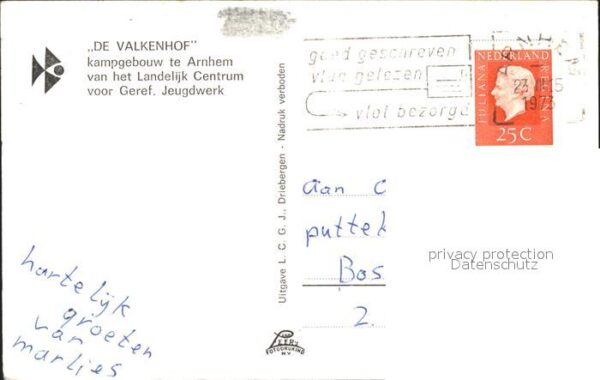 „DE VALKENHOF"
kampgebouw te Arnhem
van het Landelijk Centrum
voor Geref. Jeugdwerk
goed geschreven
vlug gelezen
vlot bezorgd
NEDERLAND
JULIANA REGINA
25C
23
1973
Uitgave L. C. G. J., Driebergen - Nadruk verboden
aan
Bos
2.
hartelijk
groeten
van
marlies
privacy protection
Datenschutz
FOTODRUKIND
N.V.